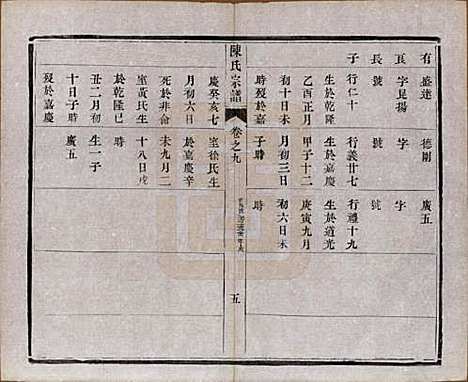 有盛連
真字昆揚
長號
子行仁十
生於乾隆
乙酉正月
初十日未
時歿於非
德剛
字
號
行義廿七
生於嘉慶
甲子十二
月初三日
子時
廣五
字
號
行禮十九
生於道光
庚寅九月
初六日未
時
陳氏宗譜
卷之九
五
慶癸亥七
月初六日
死於非命
室黃氏生
於乾隆己
丑二月初
十日子時
歿於嘉慶
室徐氏生
於嘉慶辛
未九月二
十八日戌
時
生一子
廣五